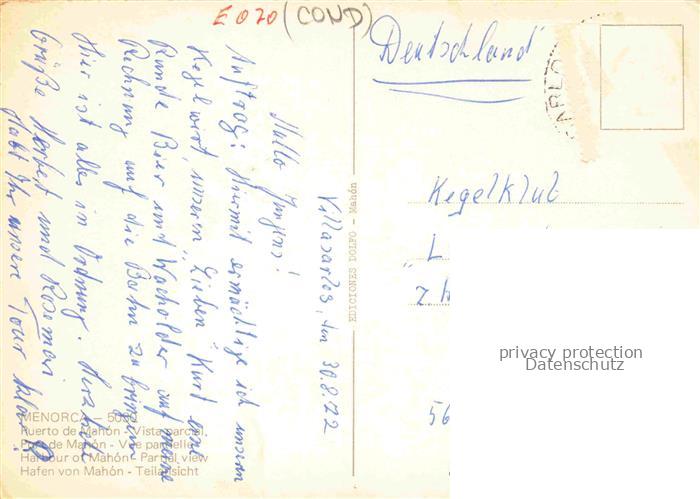 E 020 (COND)
Deutschland
Villacarlos, den 30.8.72
Hallo Jungens!
Auftrag: Hiermit ermächtige ich unseren
Kegelwirt, unseren "Lieben" Kurt eine
Runde Bier und Wacholder auf meine
Rechnung auf die Bahn zu bringen
Hier ist alles in Ordnung. Herzliche
Grüße Herbert und Rosemari
Habt Ihr unsere Tour klar?
EDICIONES DOLFO - Mahón
Kegelklub
„L
z.H
56
MENORCA - 50
Puerto de Mahón - Vista parcial
Port de Mahón - Vue partielle
Harbour of Mahón - Partial view
Hafen von Mahón - Teilansicht
privacy protection
Datenschutz